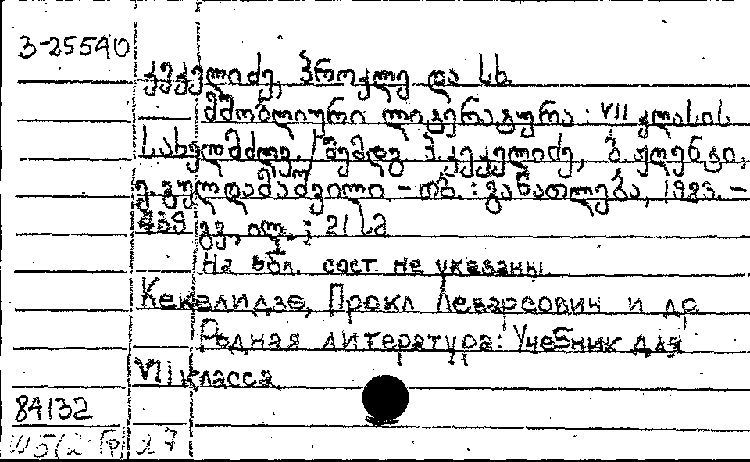 3-25540
კეკელიძე, პროკლე და სხ.
მშობლიური ლიტერატურა: VII კლასის
სახელმძღვ. / შემდგ. პ. კეკელიძე,
გულდამაშვილი – თბ.: განათლება, 1983. –
439 გვ., ილ.; 21 სმ
На обл. сост не указаны.
Кекелидзе, Прокл Леварсович и др
Родная литература: Учебник для
VII класса
84132
Ш5(2 Гр) 27